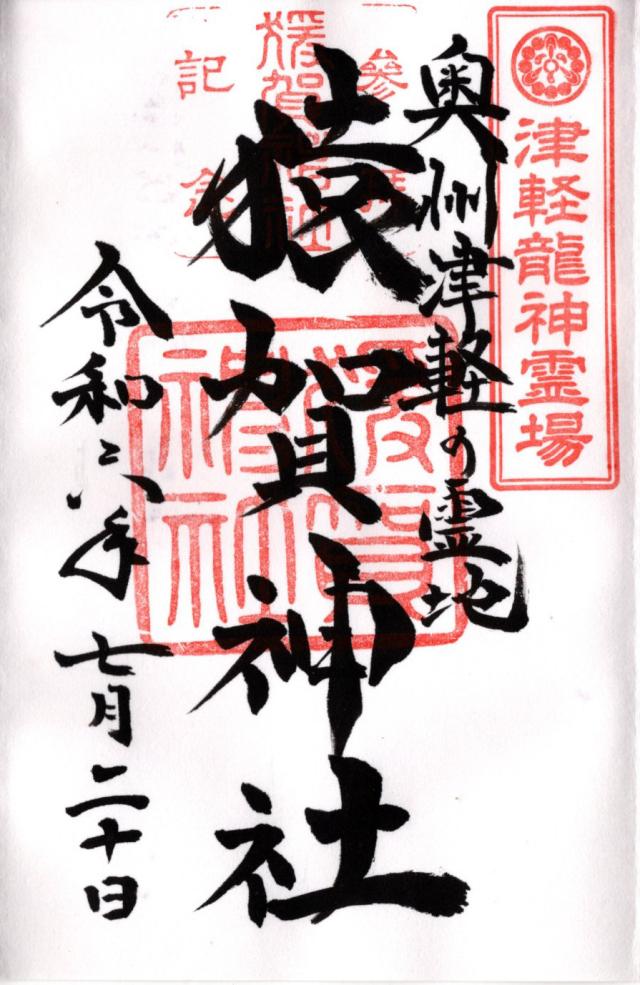 津軽龍神霊場
奥州津軽の霊地
参拝
記念
猿賀神社
猿賀神社
猿賀神社
令和六年七月二十日